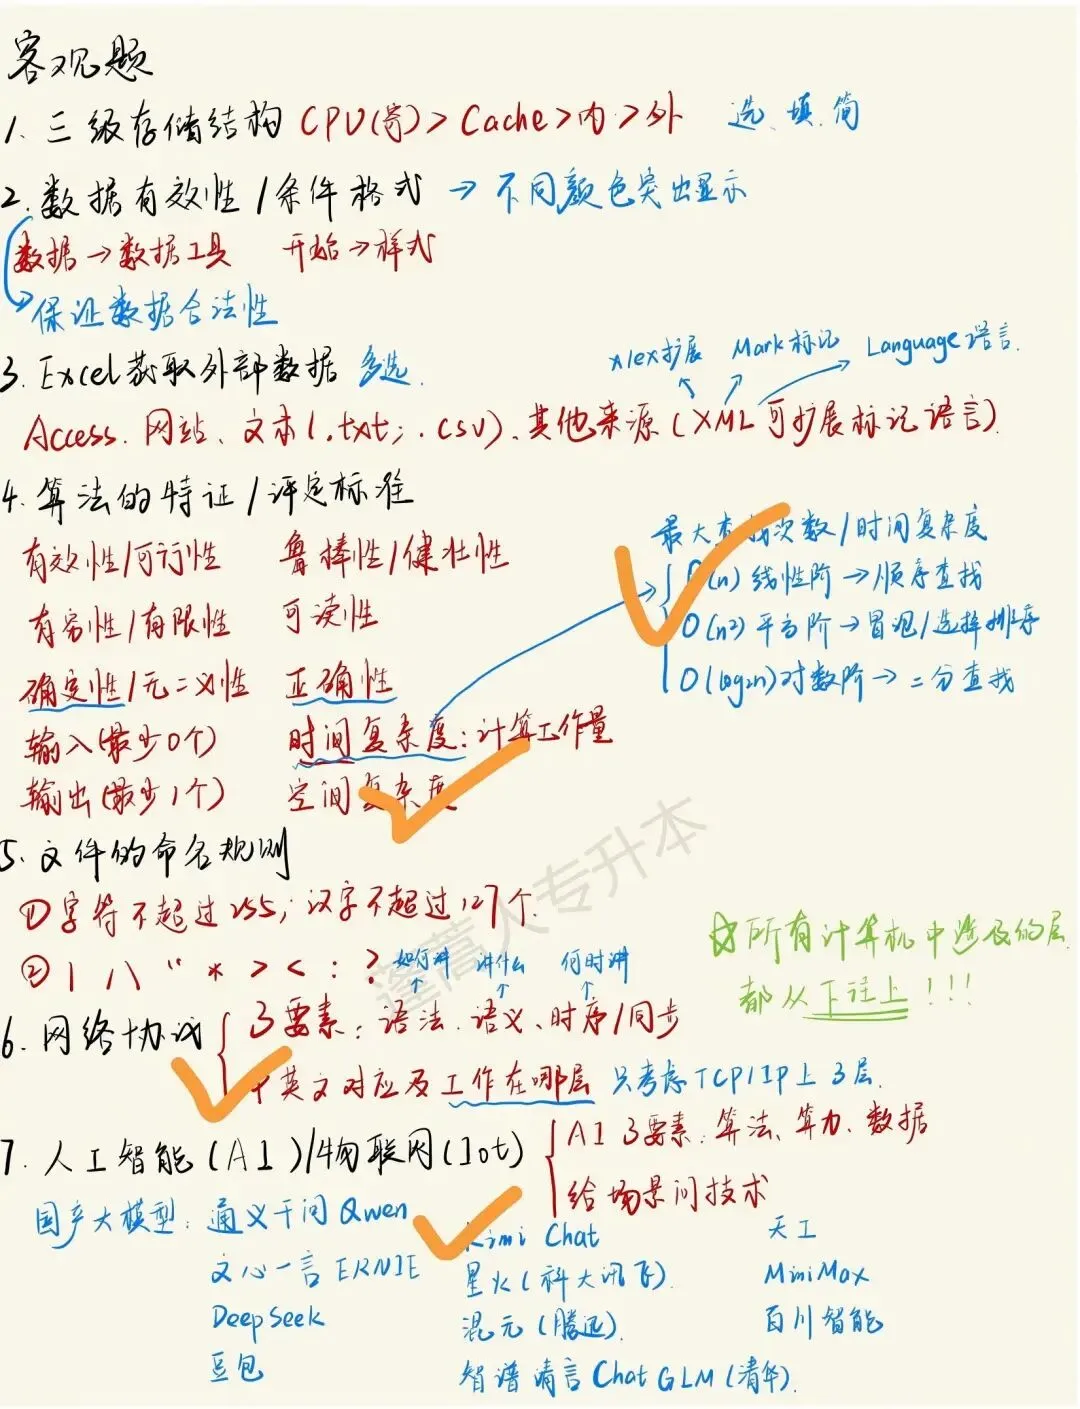 客观题
1. 三级存储结构 CPU(寄)>Cache>内>外 选、填、简
2. 数据有效性/条件格式 → 不同颜色突出显示
数据→数据工具 开始→样式
保证数据合法性
xlex扩展 Mark标记 Language语言.
3. Excel获取外部数据 多选.
Access. 网站、文本(.txt; .csv)、其他来源(XML可扩展标记语言)
4. 算法的特证/评定标准
最大查找次数/时间复杂度
有效性/可行性 鲁棒性/健壮性
(n) 线性阶→顺序查找
有穷性/有限性 可读性
O(n²) 平方阶→冒泡/选择排序
确定性/无二义性 正确性
O(log2n)对数阶→二分查找
输入(最少0个) 时间复杂度:计算工作量
输出(最少1个) 空间复杂度
5. 文件的命名规则
①字符不超过255; 汉字不超过127个.
②| / \ " * > < : ?
如何讲 讲什么 何时讲
☆所有计算机中涉及的层
都从下往上!!!
6. 网络协议 3要素: 语法. 语义、时序/同步
中英文对应及工作在哪层 只考虑TCP/IP上3层.
7. 人工智能(AI)/物联网(Iot) AI 3要素: 算法、算力、数据
给场景问技术
国产大模型: 通义千问Qwen Kimi Chat 天工
文心一言 ERNIE 星火(科大讯飞). MiniMax
DeepSeek 混元(腾迅). 百川智能
豆包 智谱清言ChatGLM(清华).
蓬蒿人专升本